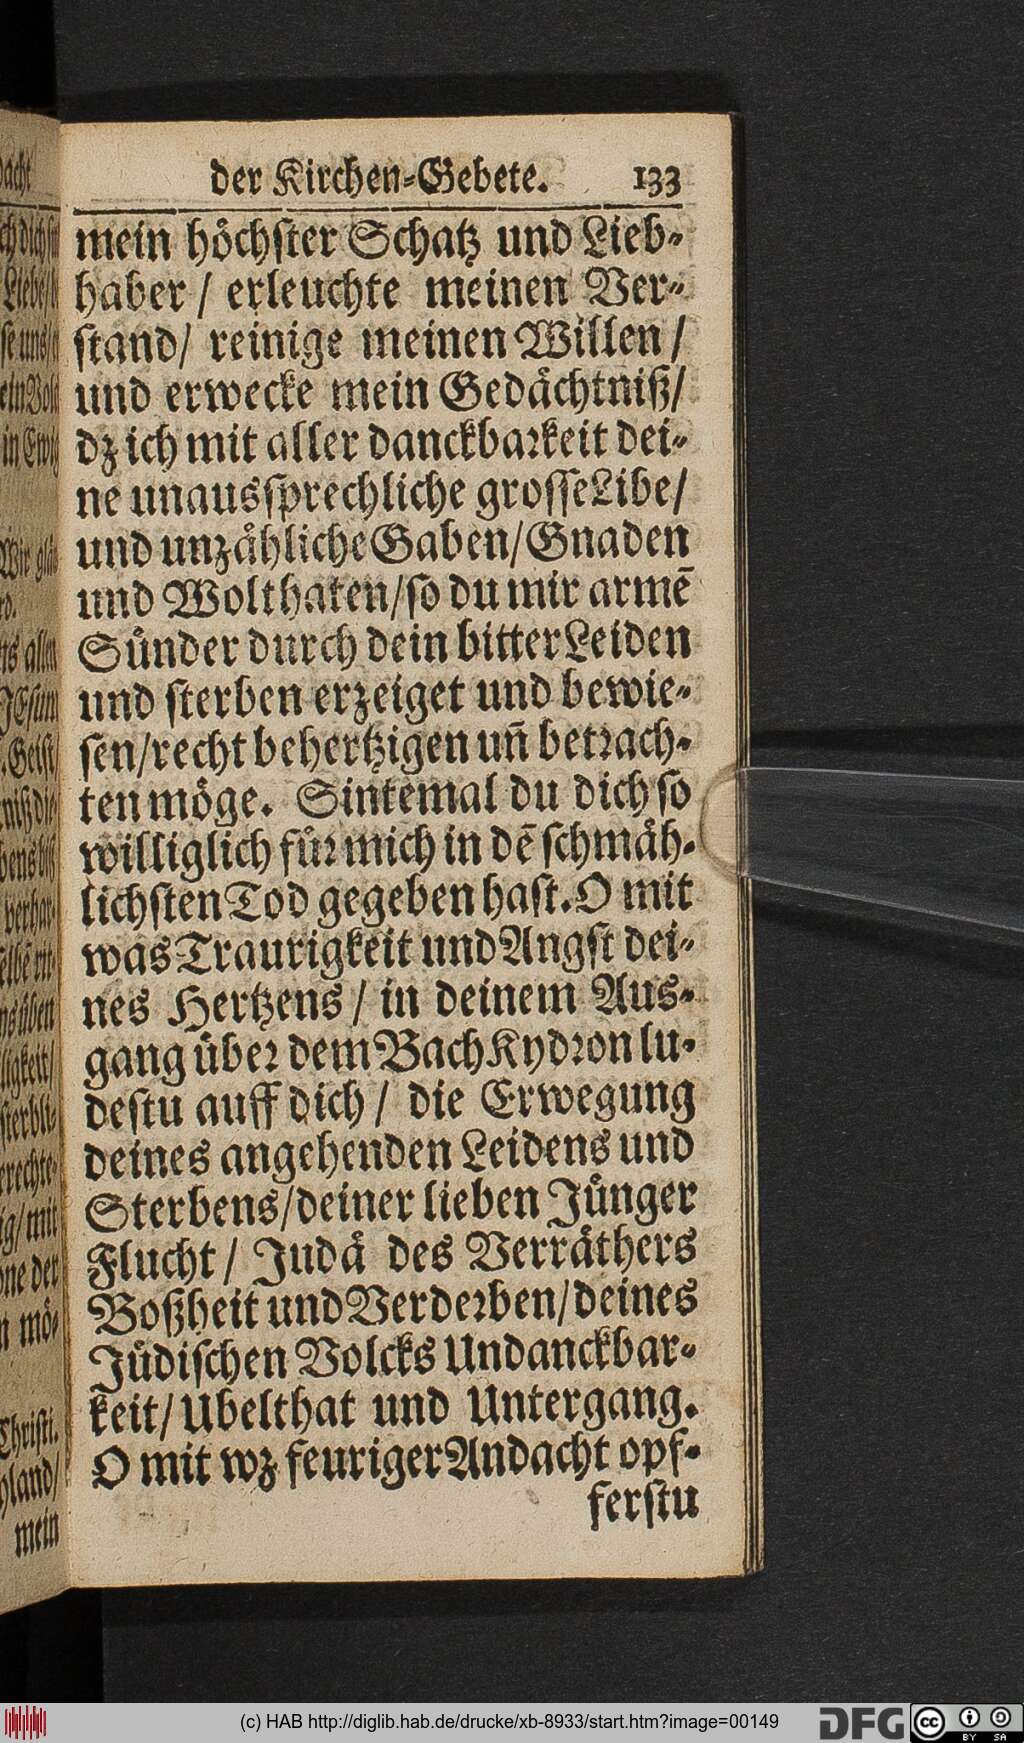 der Kirchen-Gebete. 133
mein höchster Schatz und Lieb-
haber / erleuchte meinen Ver-
stand/ reinige meinen Willen /
und erwecke mein Gedächtniß/
dz ich mit aller danckbarkeit dei-
ne unaussprechliche grosse Libe/
und unzähliche Gaben/Gnaden
und Wolthaten/so du mir armē
Sünder durch dein bitter Leiden
und sterben erzeiget und bewie-
sen/recht behertzigen un̄ betrach-
ten möge. Sintemal du dich so
williglich für mich in dē schmäh-
lichsten Tod gegeben hast. O mit
was Traurigkeit und Angst dei-
nes Hertzens / in deinem Aus-
gang über dem Bach Kydron lu-
destu auff dich / die Erwegung
deines angehenden Leidens und
Sterbens/deiner lieben Jünger
Flucht / Judä des Verräthers
Boßheit und Verderben/deines
Jüdischen Volcks Undanckbar-
keit/ Ubelthat und Untergang.
O mit wz feuriger Andacht opf-
ferstu
mein
(c) HAB http://diglib.hab.de/drucke/xb-8933/start.htm?image=00149
DFG
cc BY SA